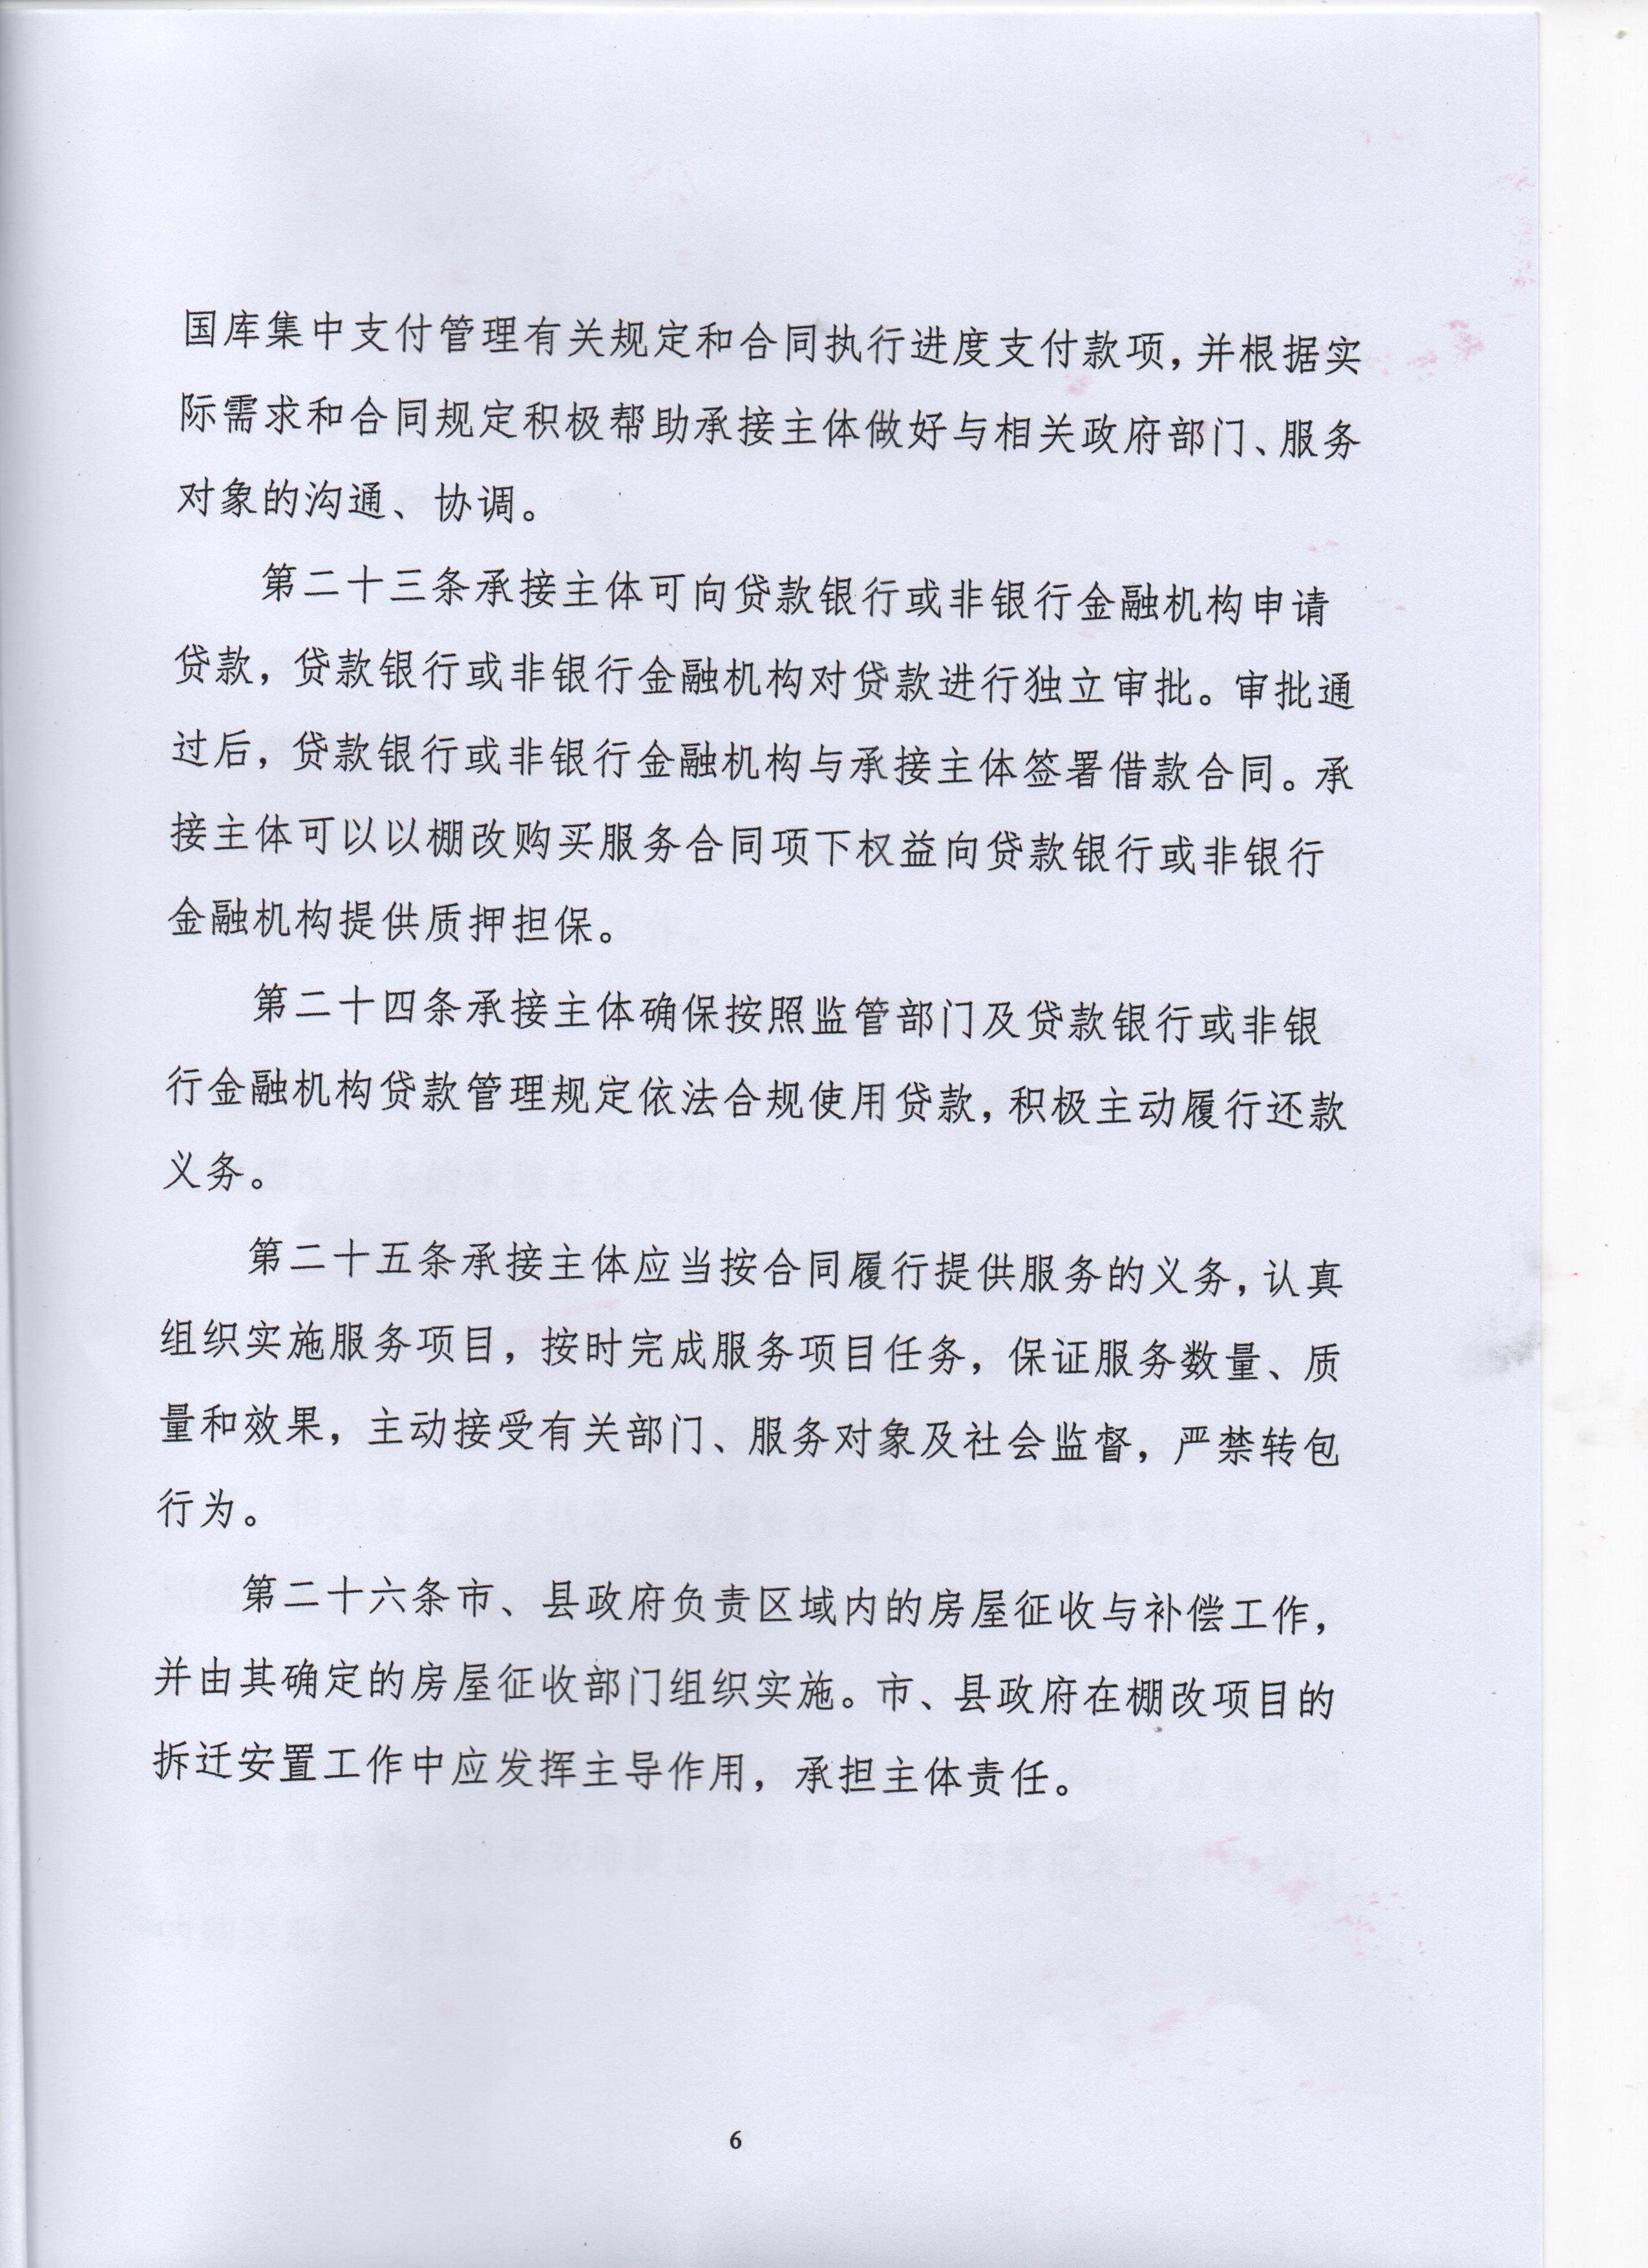 国库集中支付管理有关规定和合同执行进度支付款项，并根据实
际需求和合同规定积极帮助承接主体做好与相关政府部门、服务
对象的沟通、协调。
第二十三条承接主体可向贷款银行或非银行金融机构申请
贷款，贷款银行或非银行金融机构对贷款进行独立审批。审批通
过后，贷款银行或非银行金融机构与承接主体签署借款合同。承
接主体可以以棚改购买服务合同项下权益向贷款银行或非银行
金融机构提供质押担保。
第二十四条承接主体确保按照监管部门及贷款银行或非银
行金融机构贷款管理规定依法合规使用贷款，积极主动履行还款
义务。
第二十五条承接主体应当按合同履行提供服务的义务，认真
组织实施服务项目，按时完成服务项目任务，保证服务数量、质
量和效果，主动接受有关部门、服务对象及社会监督，严禁转包
行为。
第二十六条市、县政府负责区域内的房屋征收与补偿工作，
并由其确定的房屋征收部门组织实施。市、县政府在棚改项目的
拆迁安置工作中应发挥主导作用，承担主体责任。
6